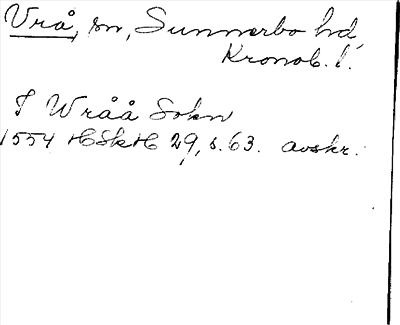 Vrå, sn, Sunnerbo hd,
Kronob. l.
I Wråå Sokn
1554 HSkH 29, s. 63. avskr.